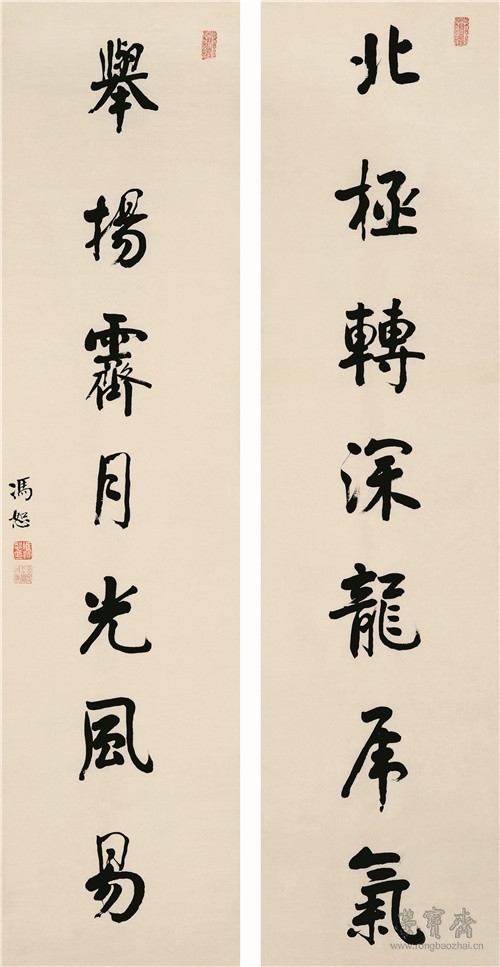 北極轉深龍虎氣
舉揚霽月光風易
馮恕
榮寶齋
www.rongbaozhai.cn